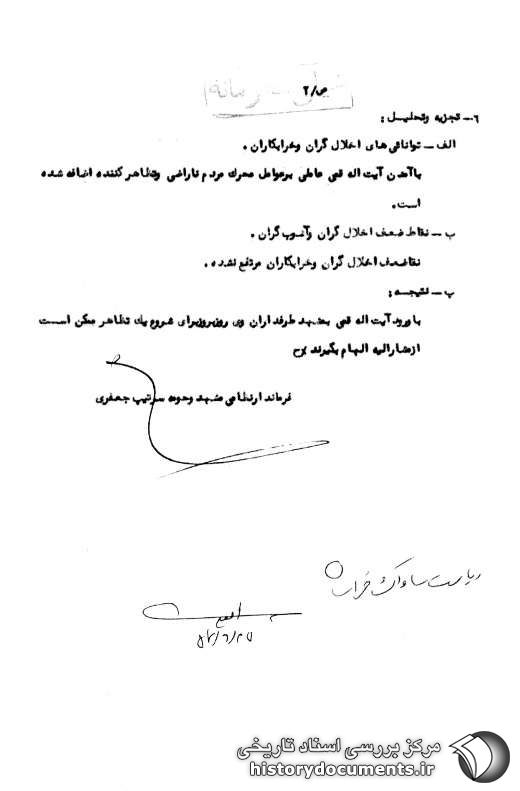 ص/۲
خیلی محرمانه
۶- تجزیه وتحلیل :
الف - توانائی های اخلال گران وخرابکاران .
باآمدن آیت اله قمی عاملی برعوامل محرک مردم ناراضی وتظاهر کننده اضافه شده
است.
ب - نقاط ضعف اخلال گران وآشوب گران .
نقاضعف اخلال گران وخرابکاران مرتفع نشده .
پ - نتیجه :
باورود آیت اله قمی بمشهد طرفداران وی روزبروزبرای شروع یک تظاهر ممکن است
ازمشارالیه الهام بگیرند
فرماندارنظامی مشهد وحومه سرتیپ جعفری
ریاست ساواک خراسان
مرکز بررسی اسناد تاریخی
historydocuments.ir